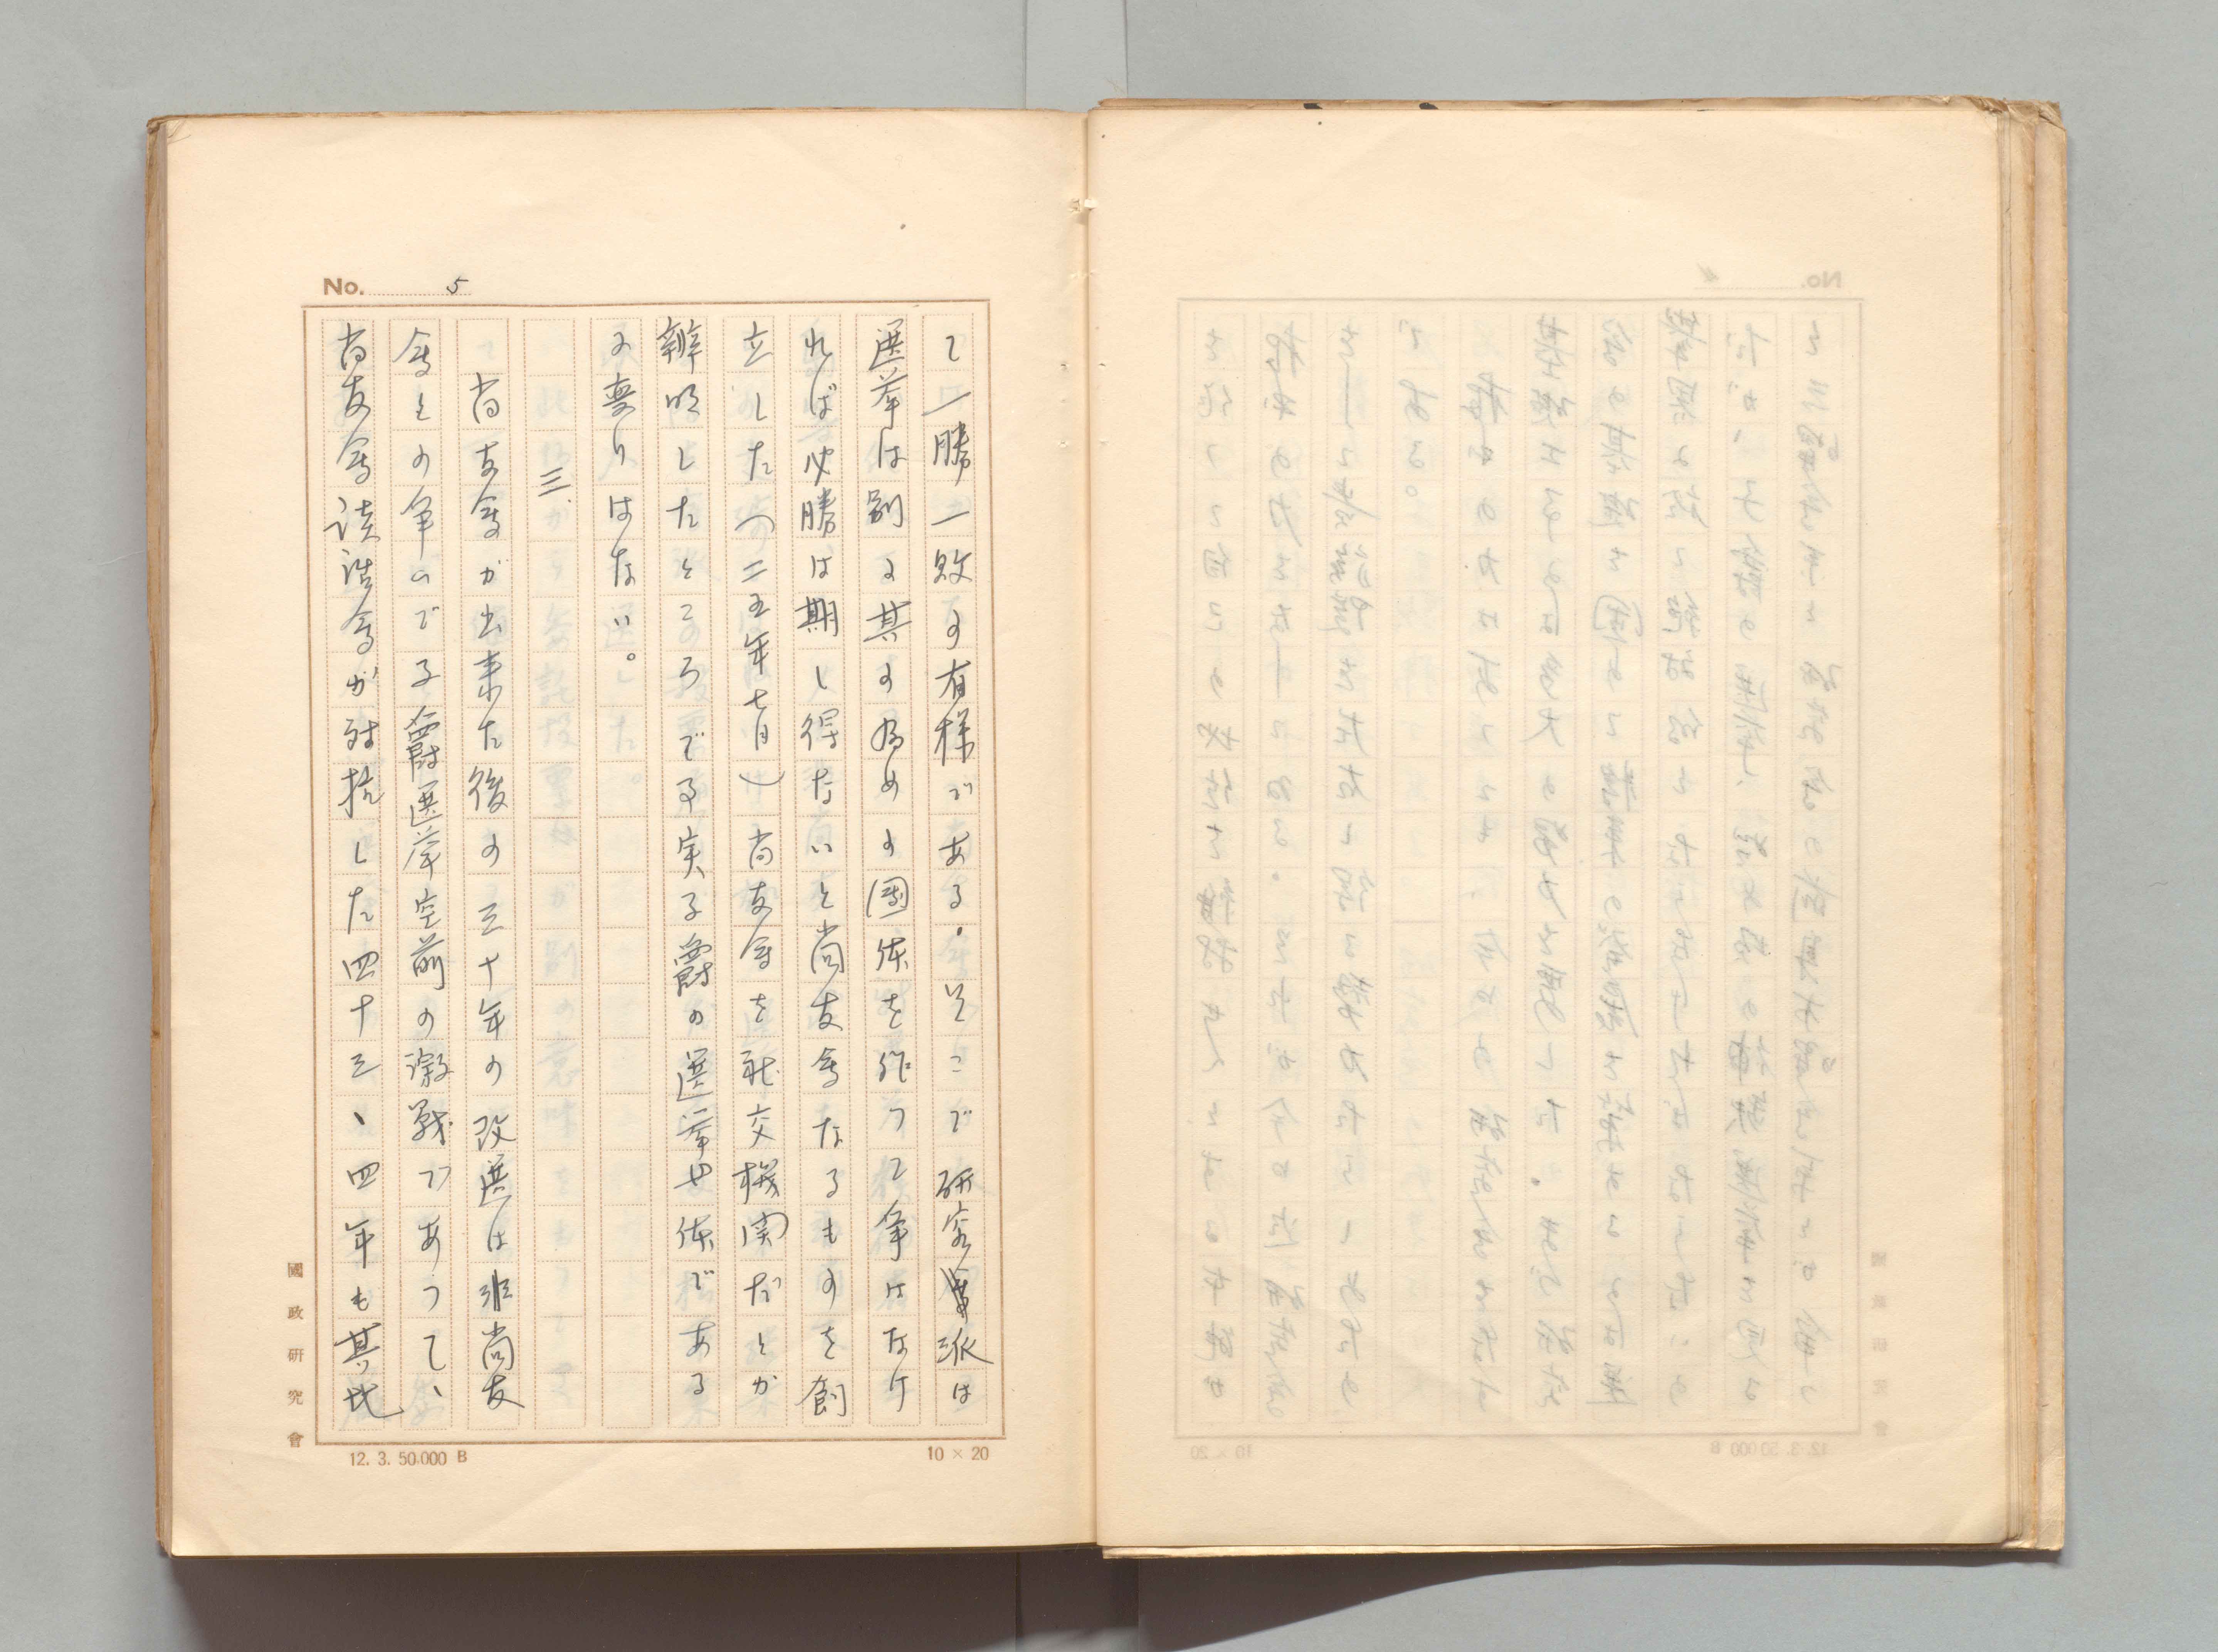 No. 5
て一勝一敗の有様である.そこで研究派は
選挙は別に其の為めの團体を作つて争はなけ
れば必勝は期し得ないと尚友会なるものを創
立した(二五年七月)尚友会を社交機関だとか
辨明したところで事実子爵の選挙母体である
に変りはない。
三、
尚友会が出来た後の三十年の改選は非尚友
会との争ので子爵選挙空前の激戦であつて、
尚友会談話会が対抗した四十三、四年も其比
國政研究會
12. 3. 50.000 B
10 × 20